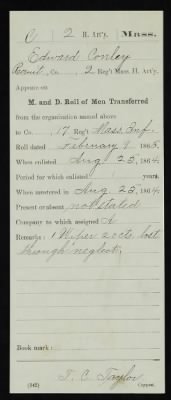 C 2 H. Art'y. Mass.
Edward Conley
Recruit, Co. , 2 Reg't Mass. H. Art'y.
Appears on
M. and D. Roll of Men Transferred
from the organization named above
to Co. , 17 Reg't Mass. Inf.
Roll dated February 9, 1865.
When enlisted Aug 25, 1864.
Period for which enlisted years.
When mustered in Aug 25, 1864.
Present or absent not stated
Company to which assigned A
Remarks: 1 Wiper 20 cts. lost
through neglect.
Book mark:
T. C. Taylor
(342) Copyist.